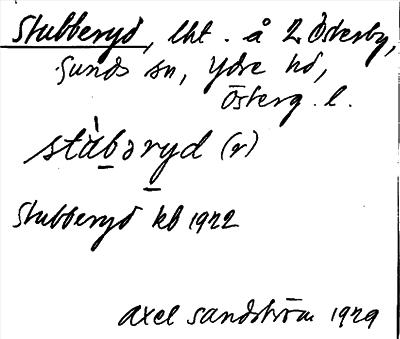 Stubberyd, lht. å 2 Österby,
Sunds sn, Ydre hd,
Österg. l.
stàbəryd (r)
Stubberyd kb 1922
Axel Sandström 1929